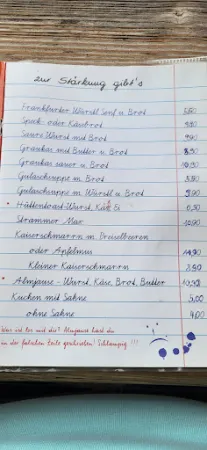 zur Stärkung gibt's
Frankfurter Würstl Senf u. Brot
Speck oder Käsebrot
Saure Wurst mit Brot
Graukas mit Butter u. Brot
Graukas sauer u. Brot
Gulaschsuppe m. Brot
Gulaschsuppe m. Würstl u. Brot 9.00
Hüttentoast-Wurst, Käse
Strammer Max 10.90
Kaiserschmarrn m. Preiselbeeren
oder Apfelmus 14.90
Kleiner Kaiserschmarrn
Almjause - Wurst, Käse, Brot, Butter
Kuchen mit Sahne 5.00
ohne Sahne 4.00
Was ist los mit dir? Almjause hast du
in der falschen Zeile geschrieben! Schlampig!!!